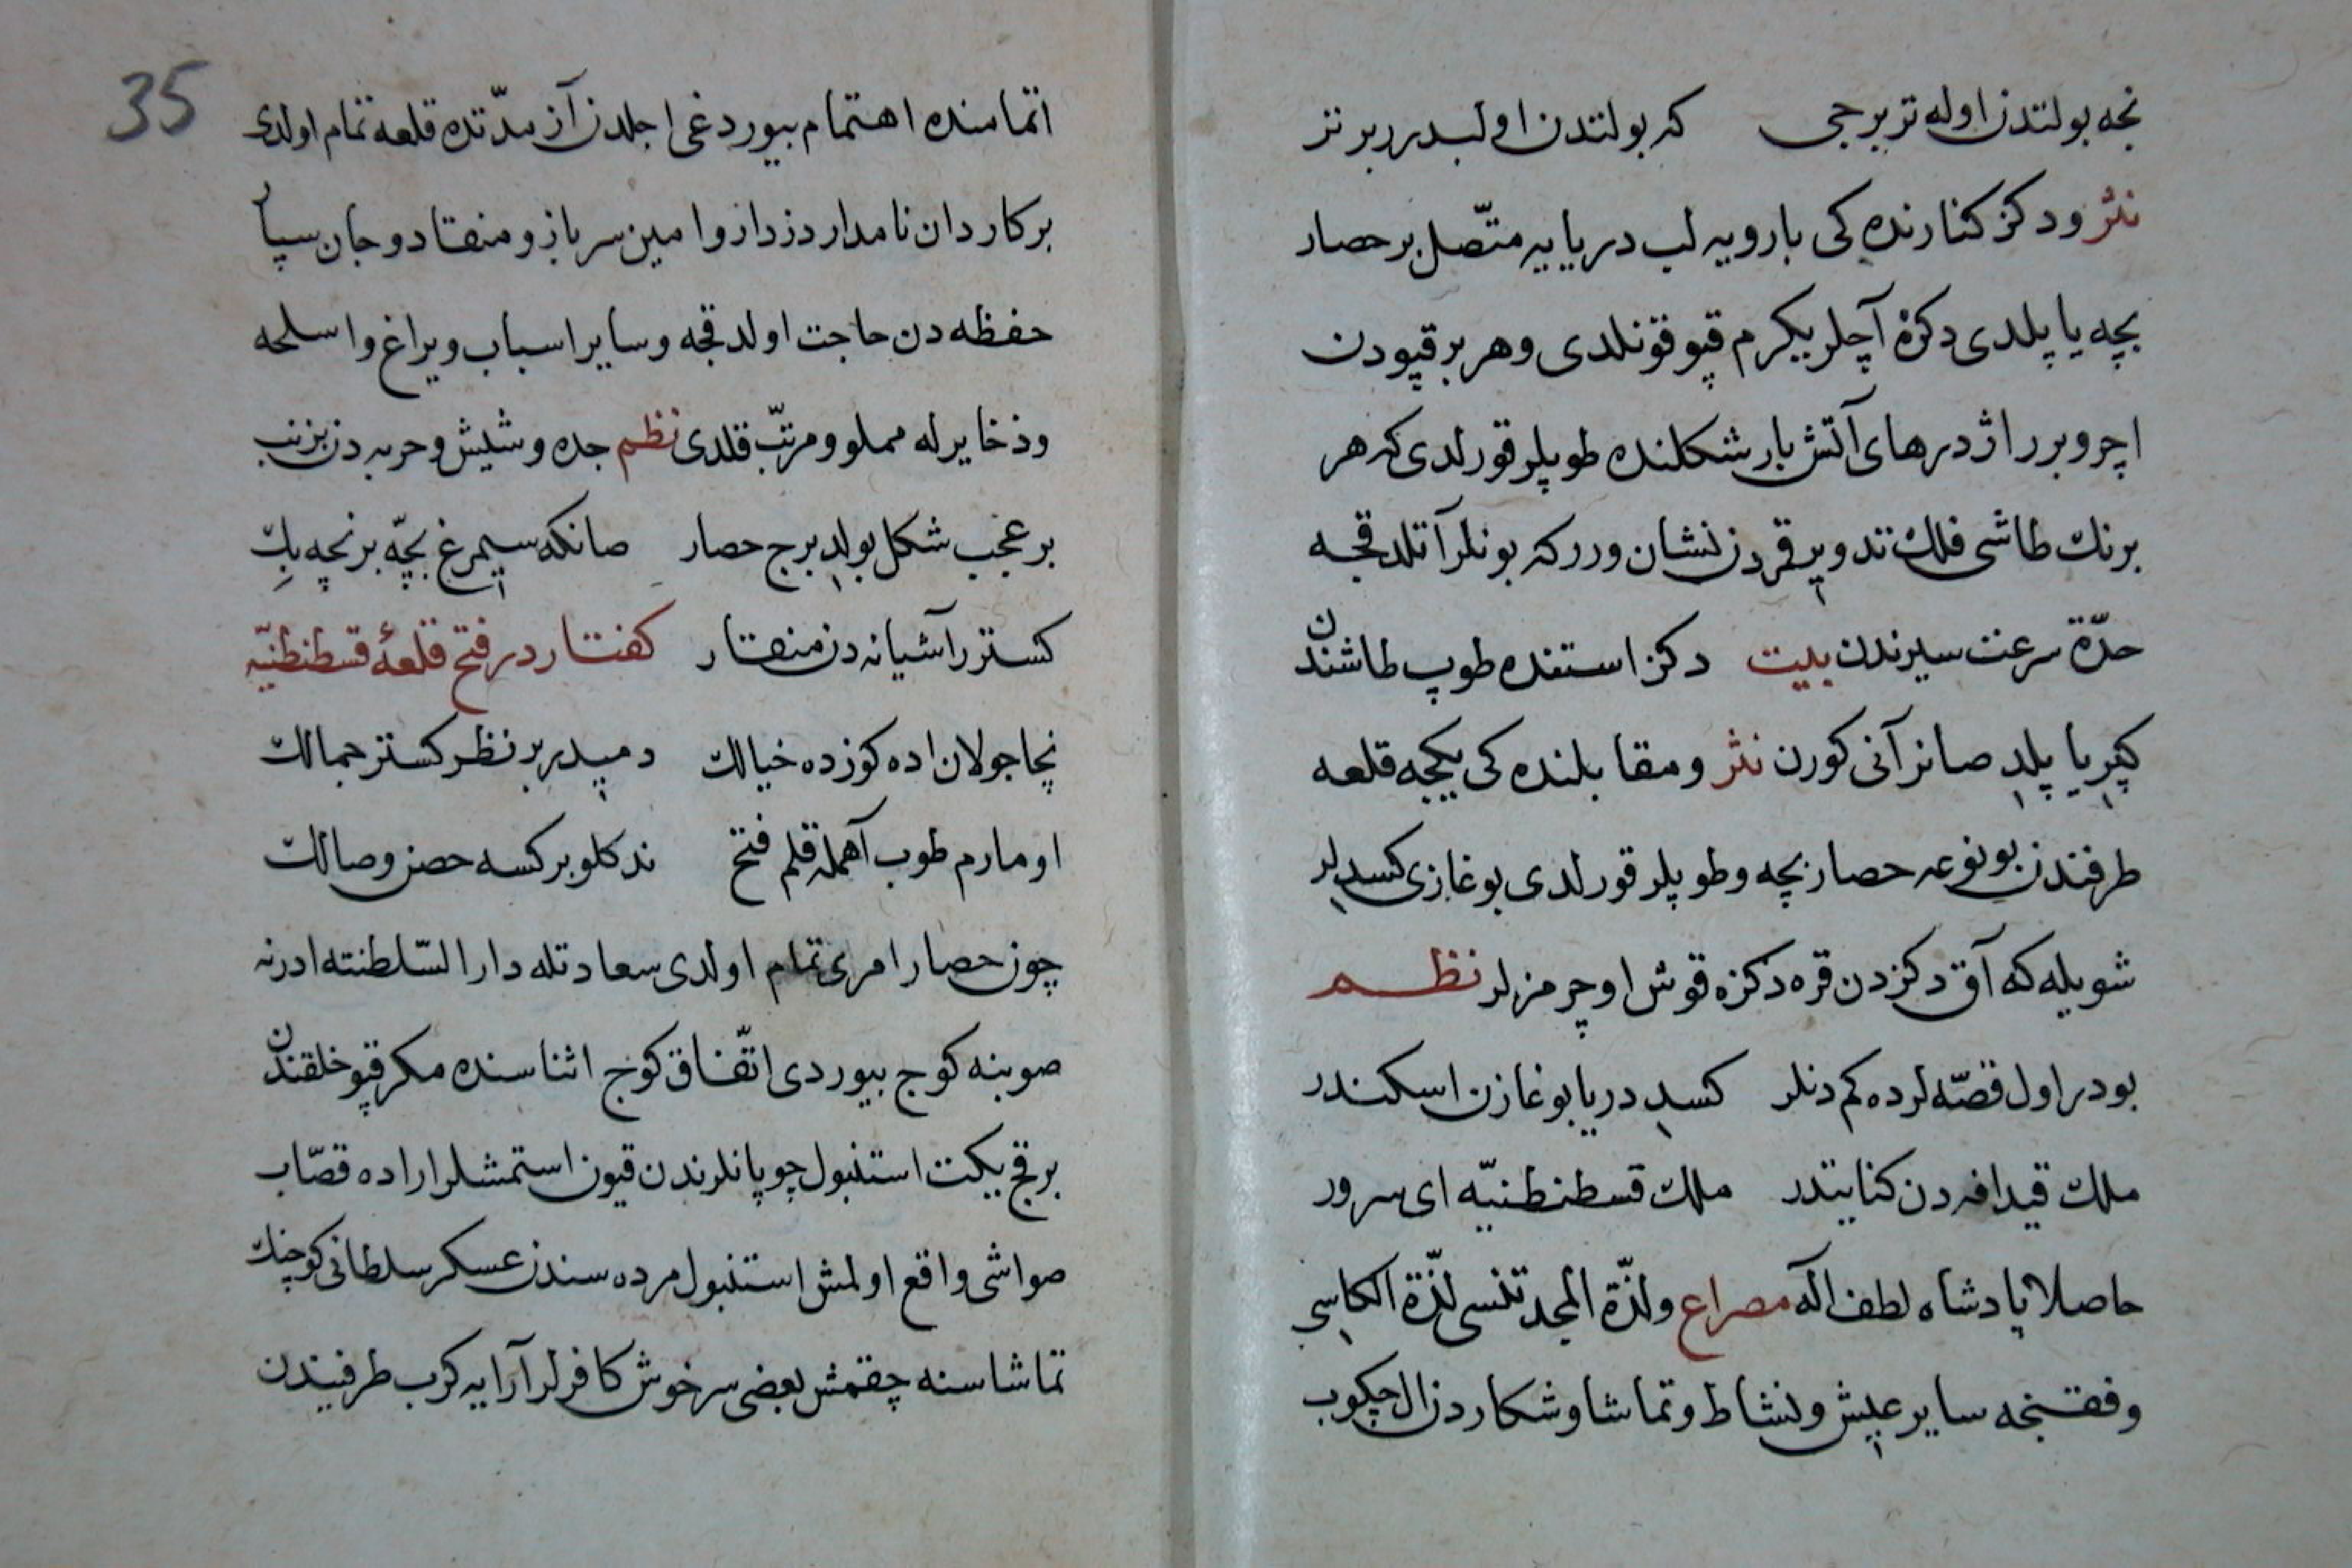 نجه بولتدن اوله تز برجی كه بولتدن اولبدرر بر تز
نثر ودكز كنارنده كی بارویه لب دریایه متّصل بر حصار
بچه یاپلدی دكزه آچلر یكرم قپو قونلدی وهر بر قپودن
اچرو برر اژدرهای آتش بار شكلنده طوپلر قورلدی كه هر
برنك طاشی فلك تدویر قردن نشان ورر كه بونلر آتلدقجه
حدّة سرعت سیرندن بیت دكز استنده طوپ طاشندن
كپر یاپلد صانر آنی كورن نثر ومقابلنده كی یكیجه قلعه
طرفندن بو نوعه حصار بچه وطوپلر قورلدی بوغازی كسدلر
شویله كه آق دكزدن قره دكزه قوش اوچرمزلر نظم
بودر اول قصّه لرده كم دنلر كسد دریا بوغازن اسكندر
ملك قیدافه دن كنایتدر ملك قسطنطنیّه ای سرور
حاصلا پادشاه لطف اله مصراع ولذّة المجد تنسی لذّة الكاس
وفقنجه سایر عیش ونشاط وتماشا وشكاردن ال چكوب
35
اتمامنده اهتمام بیوردغی اجلدن آز مدّتده قلعه تمام اولدی
بر كاردان نامدار دزدار وامین سرباز ومنقاد وجان سپار
حفظه دن حاجت اولدقجه وسایر اسباب ویراغ واسلحه
وذخایرله مملو ومرتّب قلدی نظم جده وشیش وحربه دن بزنب
بر عجب شكل بولد برج حصار صانكه سیمرغ بچّه برنچه بك
كستر راشیانه دن منقار كفتار در فتح قلعهٔ قسطنطنیّه
نچا جولان اده كوزده خیالك دمیدر بر نظر كستر جمالك
اومارم طوب آهمله قلم فتح ندكلو بركسه حصن وصالك
چون حصار امری تمام اولدی سعادتله دار السّلطنته ادرنه
صوبنه كوج بیوردی اتّفاق كوج اثناسنده مكر قپو خلقندن
بر قچ یكت استنبول چوپانلرندن قیون استمشلر اراده قصّاب
صواشی واقع اولمش استنبول مرده سندن عسكر سلطانی كوچنك
تماشاسنه چقمش بعضی سرخوش كافرلر آرایه كرب طرفیندن